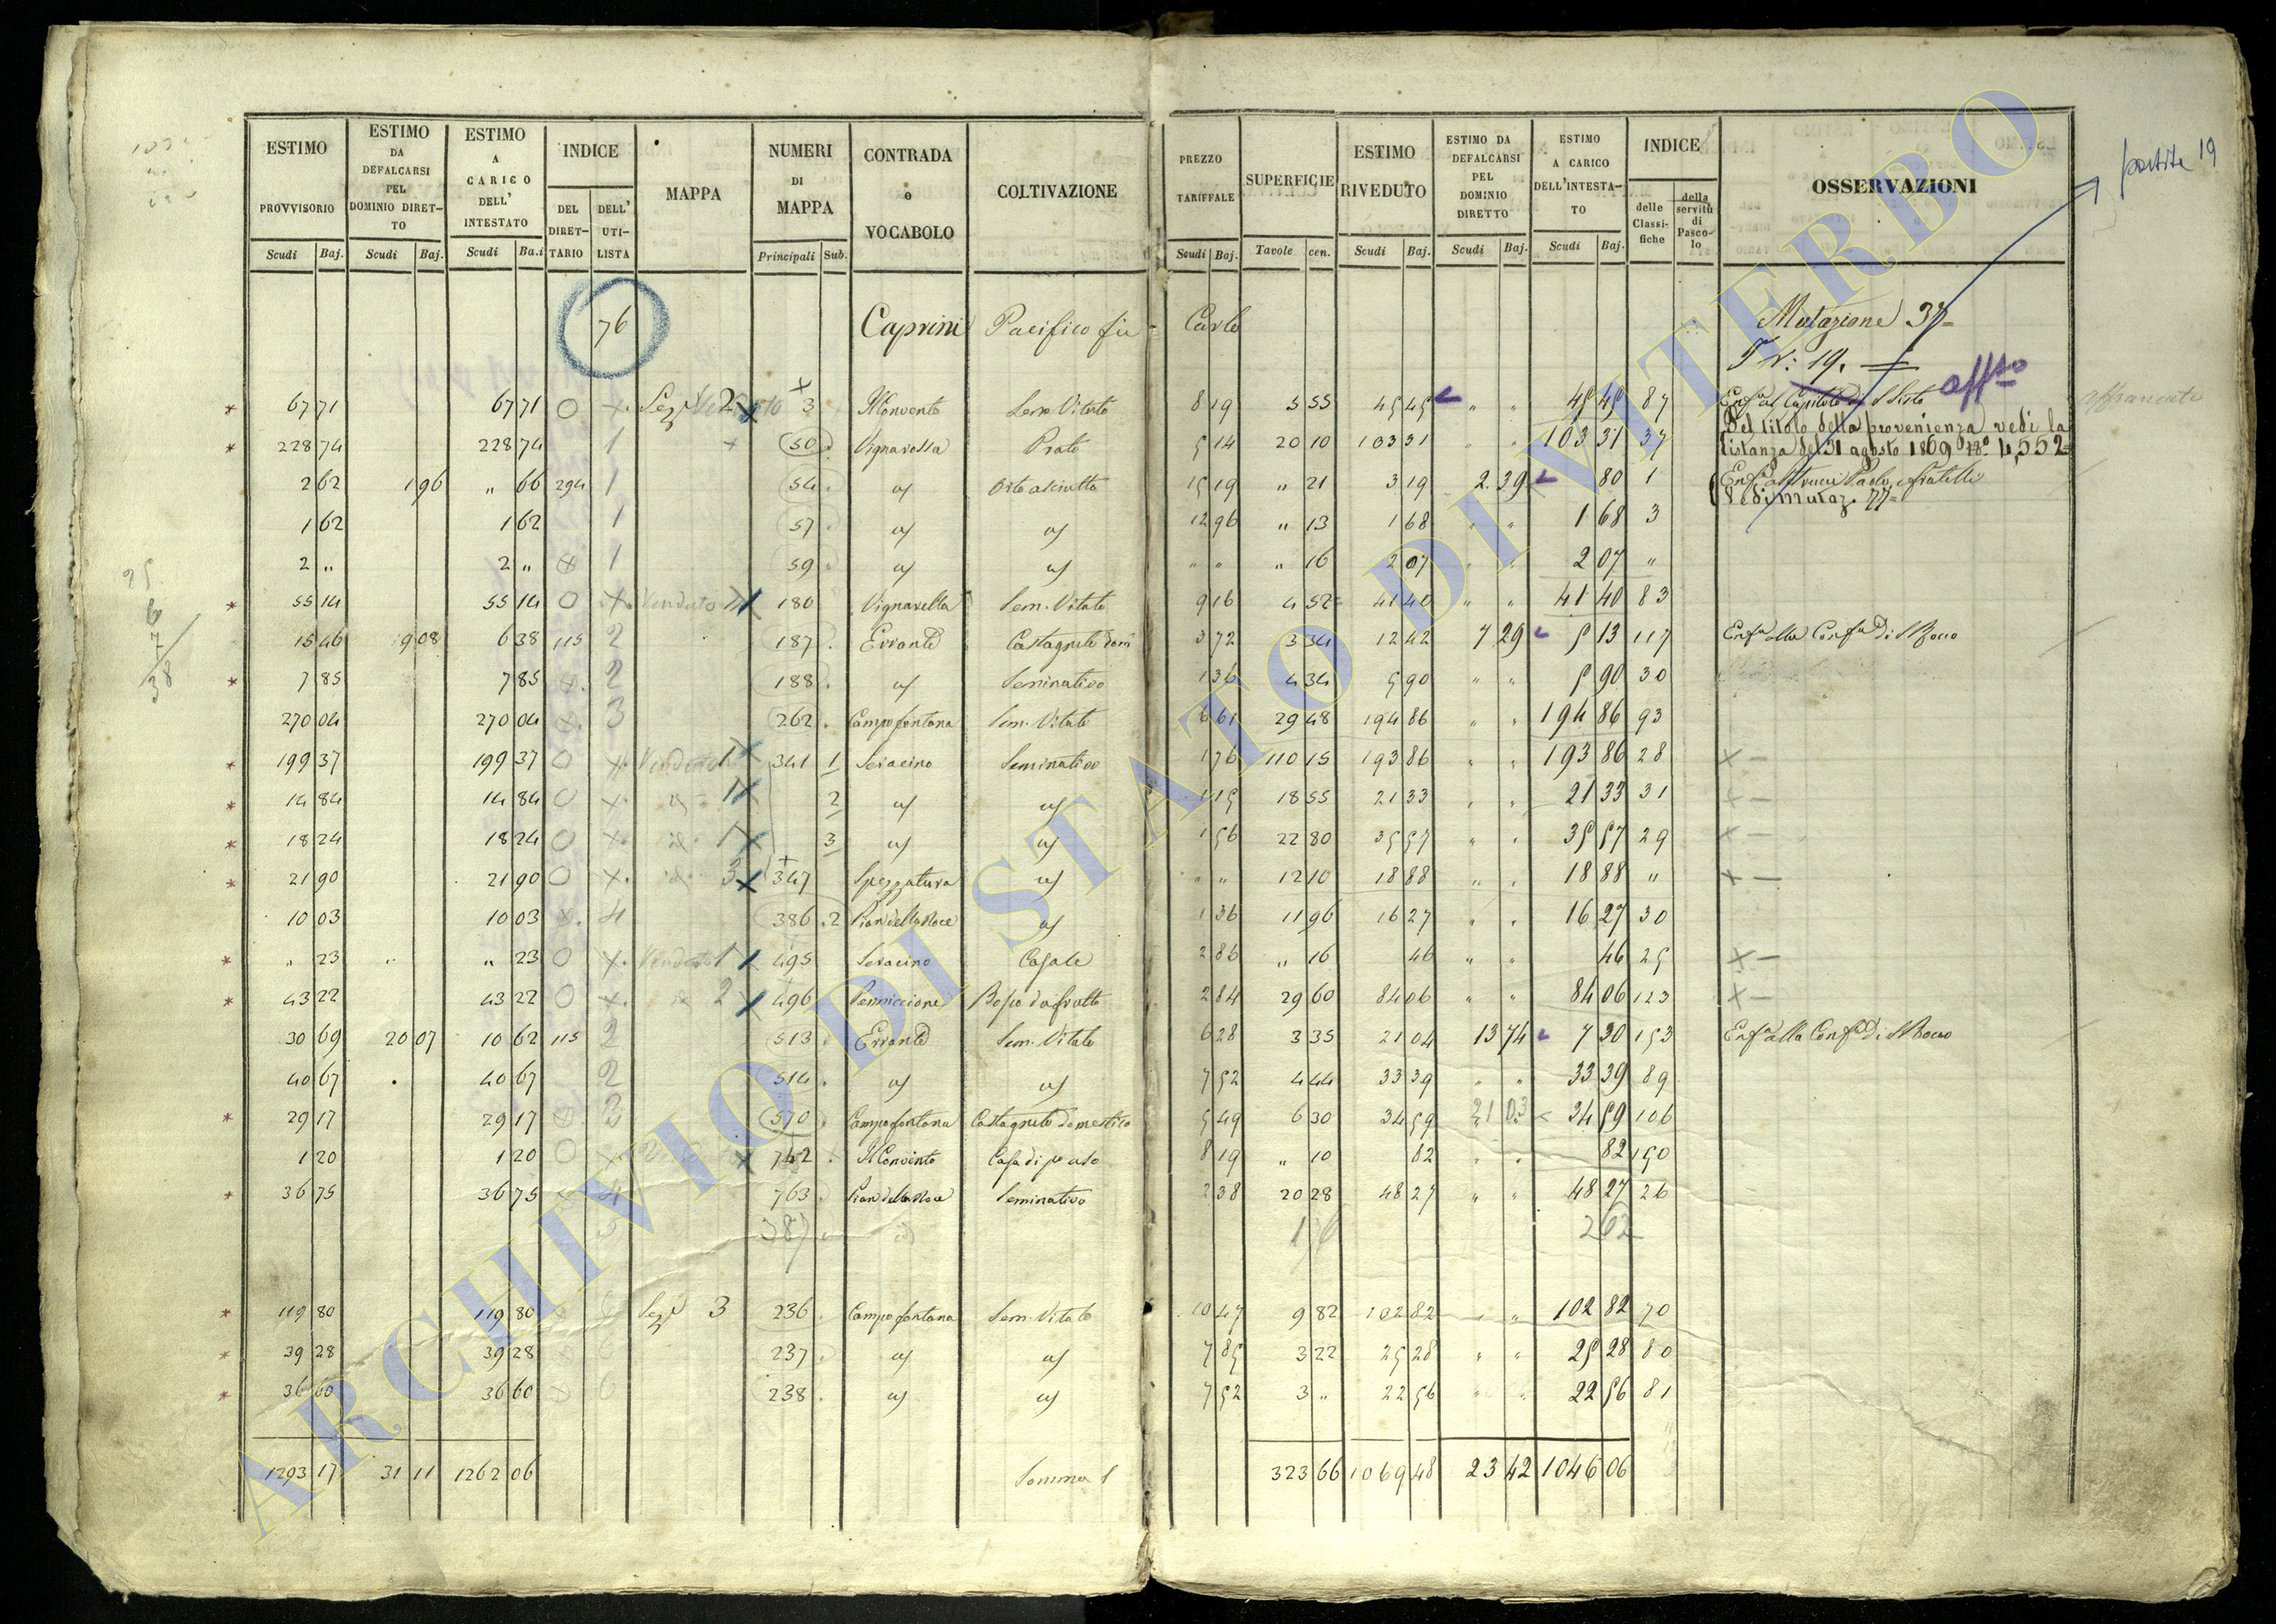 ESTIMO PROVVISORIO Scudi Baj. | ESTIMO DA DEFALCARSI PEL DOMINIO DIRETTO Scudi Baj. | ESTIMO A CARICO DELL' INTESTATO Scudi Ba.i | INDICE DEL DIRETTARIO DELL' UTILISTA | MAPPA | NUMERI DI MAPPA Principali Sub. | CONTRADA o VOCABOLO | COLTIVAZIONE | PREZZO TARIFFALE Scudi Baj. | SUPERFICIE Tavole cen. | ESTIMO RIVEDUTO Scudi Baj. | ESTIMO DA DEFALCARSI PEL DOMINIO DIRETTO Scudi Baj. | ESTIMO A CARICO DELL'INTESTATO Scudi Baj. | INDICE delle Classifiche della servitù di Pascolo | OSSERVAZIONI
partite 19
76 Caprini Pacifico fu Carlo Mutazione 37
19. affto
67 71 67 71 O x Sez 2 3 Il Convento Sem Vitato 8 19 5 55 45 45 " " 45 45 87 Enf al Capitolo di S Sisto
228 74 228 74 1 50 Vignarella Prato 5 14 20 10 103 31 103 31 37 Del titolo della provenienza vedi la istanza del 31 agosto 1869 No 4,552
2 62 1 96 " 66 294 1 54 Orto asciutto 15 19 " 21 3 19 2 39 80 1 Paolo, e fratelli
Vedi Mutaz. 77
1 62 1 62 1 57 12 96 " 13 1 68 " " 1 68 3
2 " 2 " x 1 59 " " " 16 2 07 2 07 "
55 14 55 14 O x Venduto 180 Vignarella Sem. Vitato 9 16 4 52 41 40 " " 41 40 83
15 46 9 08 6 38 115 2 187 Errante Castagneto dom 3 72 3 34 12 42 7 29 5 13 117 Enf alla Conf di S Rocco
7 85 7 85 x 2 188 Seminativo 1 36 4 34 5 90 " " 5 90 30
270 04 270 04 x 3 262 Campo fontana Sem. Vitato 6 61 29 48 194 86 " " 194 86 93
199 37 199 37 O x Venduto 1 341 1 Saracino Seminativo 1 76 110 15 193 86 " " 193 86 28 x
14 84 14 84 O x 1 2 1 15 18 55 21 33 21 33 31 x
18 24 18 24 O x 1 3 1 56 22 80 35 57 35 57 29 x
21 90 21 90 O x 3 347 Spezzatura " " 12 10 18 88 18 88 " x
10 03 10 03 x 4 386 2 Pian della Noce 1 36 11 96 16 27 16 27 30
" 23 " 23 O x Venduto 1 495 Saracino Casale 2 86 " 16 46 " " 46 25 x
43 22 43 22 O x 2 496 Bosco da frutto 2 84 29 60 84 06 " " 84 06 123 x
30 69 20 07 10 62 115 2 513 Errante Sem. Vitato 6 28 3 35 21 04 13 74 7 30 153 Enf alla Conf di S Rocco
40 67 40 67 2 514 7 52 4 44 33 39 33 39 89
29 17 29 17 3 570 Campo fontana Castagneto domestico 5 49 6 30 34 59 21 03 34 59 106
1 20 1 20 O x 742 Il Convento Casa di po uso 8 19 " 10 82 82 150
36 75 36 75 4 763 Pian della Noce Seminativo 2 38 20 28 48 27 " " 48 27 26
387
119 80 119 80 6 Sez 3 236 Campo fontana Sem. Vitato 10 47 9 82 102 82 102 82 70
39 28 39 28 6 237 7 85 3 22 25 28 " " 25 28 80
36 60 36 60 6 238 7 52 3 " 22 56 22 56 81
1293 17 31 11 1262 06 Somma 323 66 1069 48 23 42 1046 06
ARCHIVIO DI STATO DI VITERBO